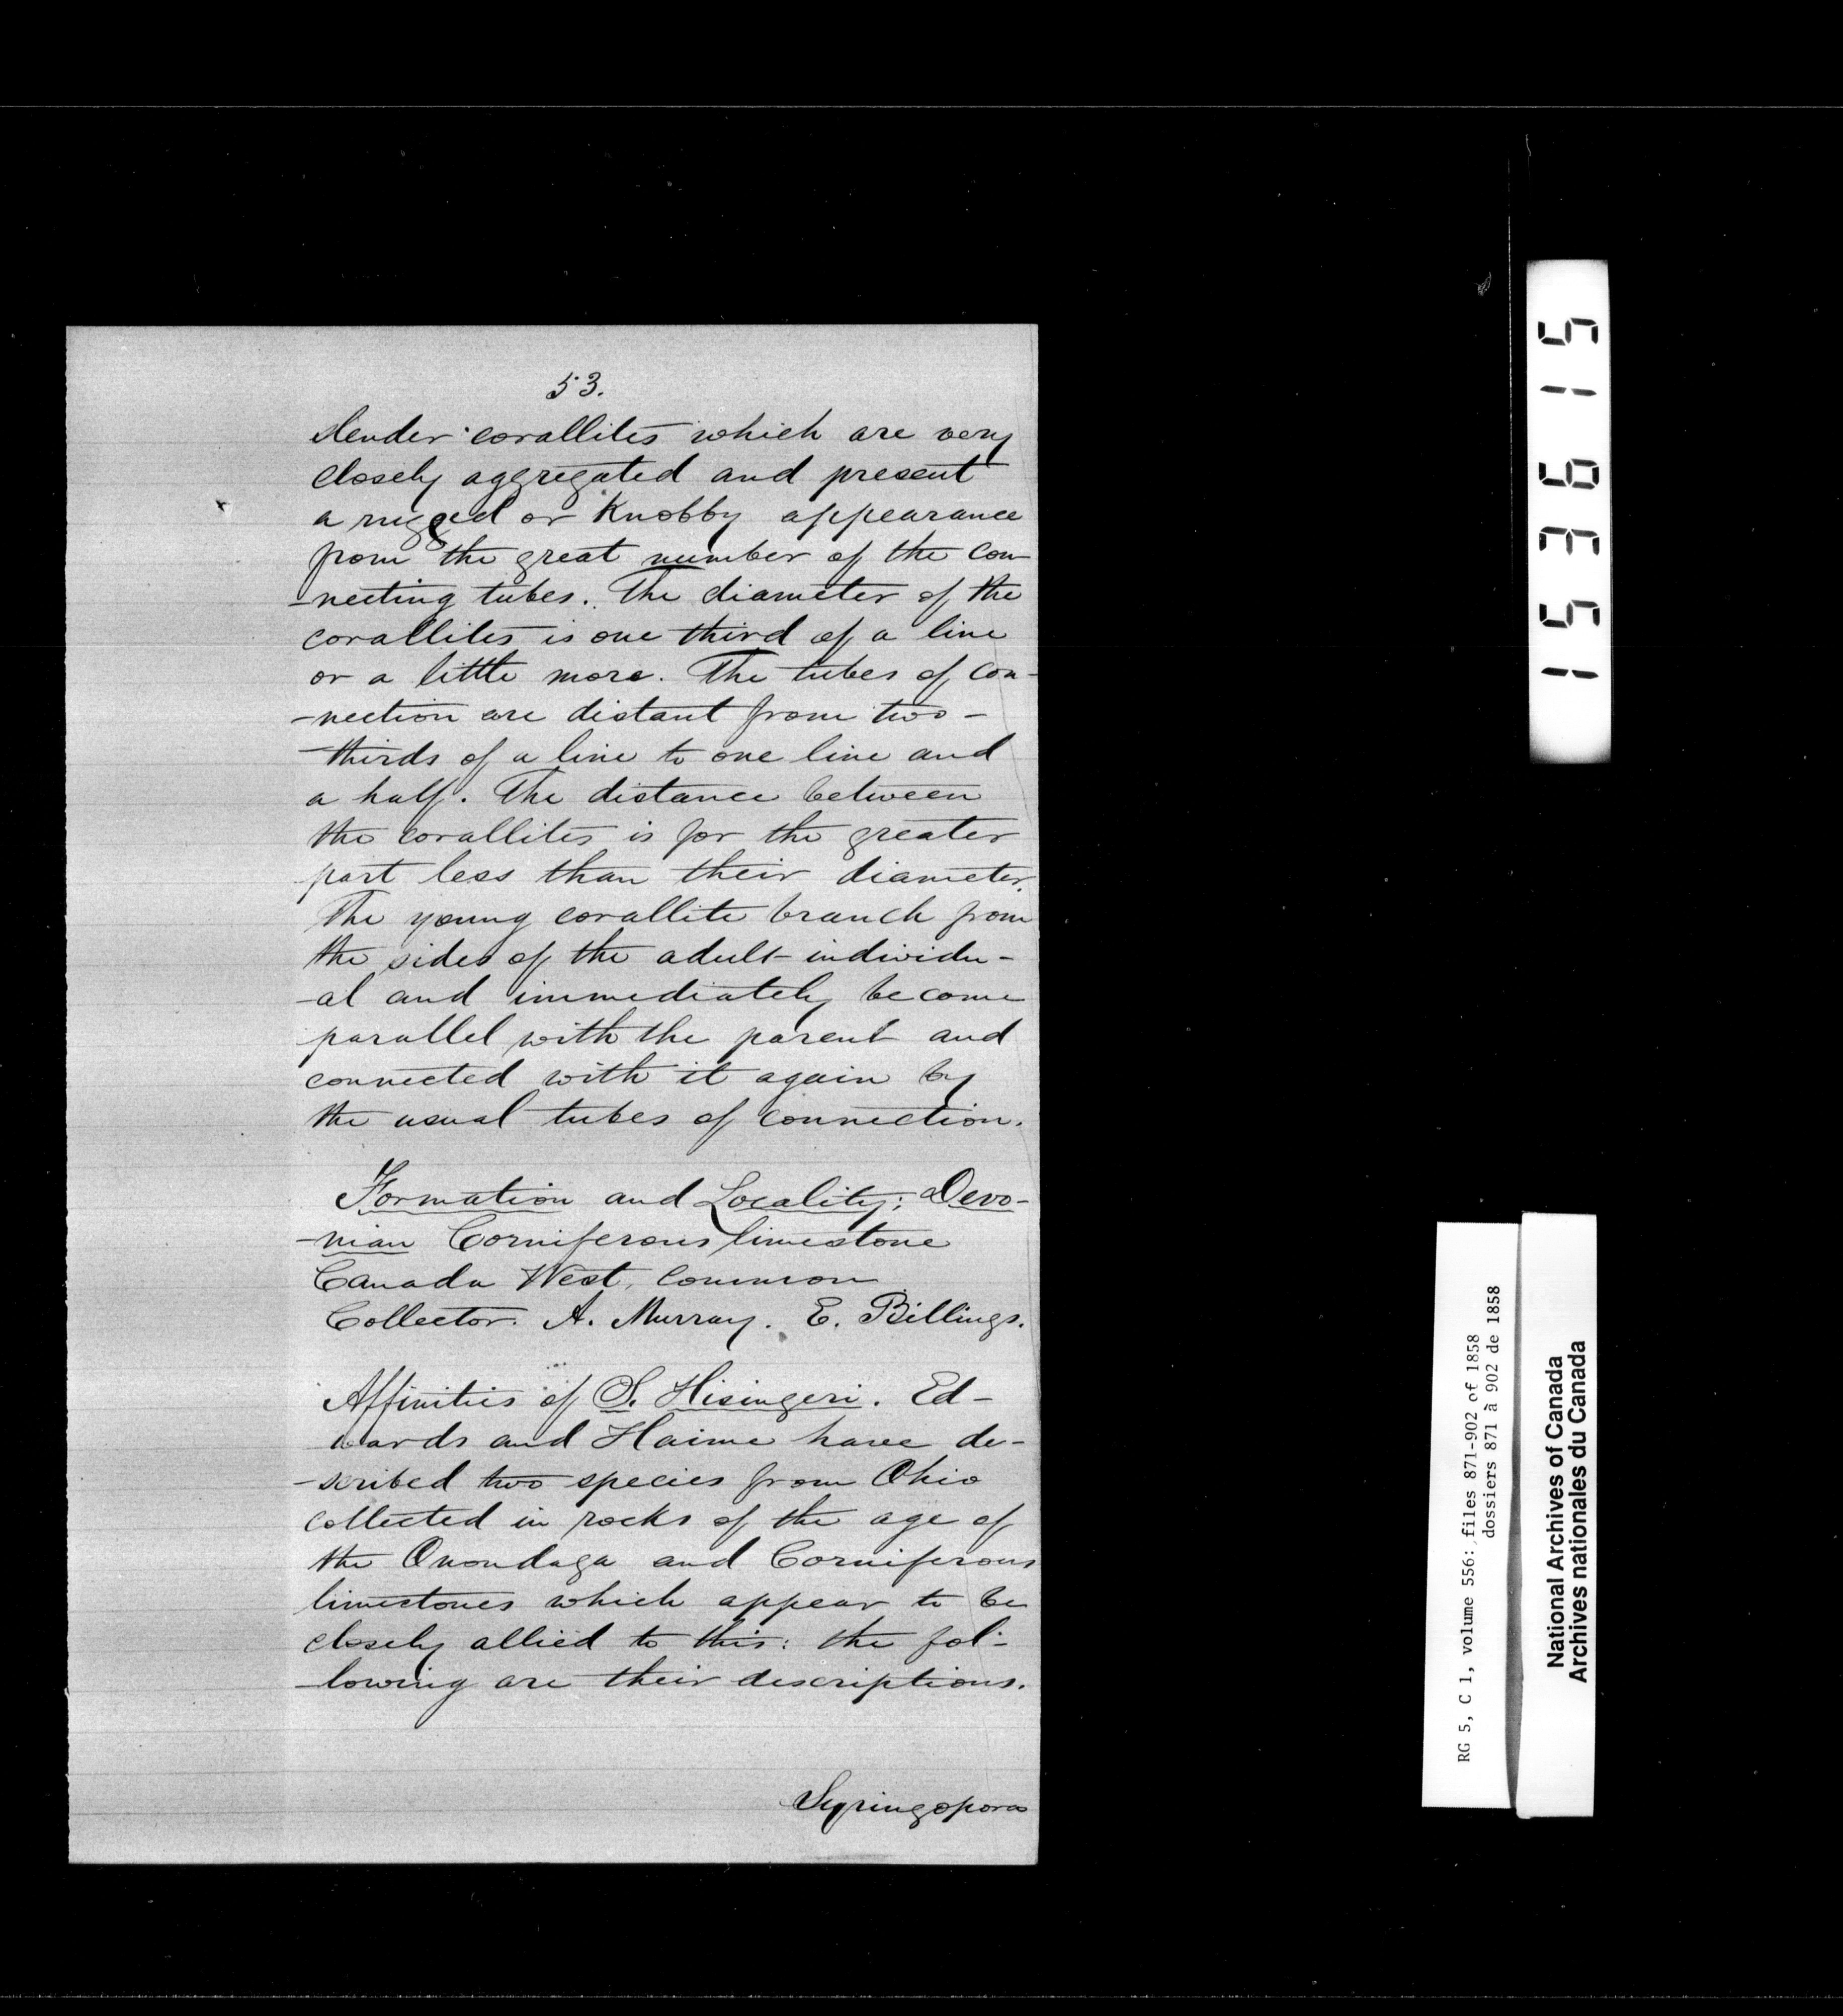 53.
slender corallites which are very
closely aggregated and present
a rugged or Knobby appearance
from the great number of the con-
-necting tubes. The diameter of the
corallites is one third of a line
or a little more. The tubes of con-
-nection are distant from two-
thirds of a line to one line and
a half. The distance between
the corallites is for the greater
part less than their diameter.
The young corallite branch from
the sides of the adult individu-
-al and immediately become
parallel with the parent and
connected with it again by
the usual tubes of connection.
Formation and Locality; Devo-
-nian Corniferous limestone
Canada West, common
Collector. A. Murray. E. Billings.
Affinities of S. Hisingeri. Ed-
wards and Haime have de-
-scribed two species from Ohio
collected in rocks of the age of
the Onondaga and Corniferous
limestones which appear to be
closely allied to this: the fol-
-lowing are their descriptions.
Syringopora
153615
RG 5, C 1, volume 556: files 871-902 of 1858
dossiers 871 à 902 de 1858
National Archives of Canada
Archives nationales du Canada